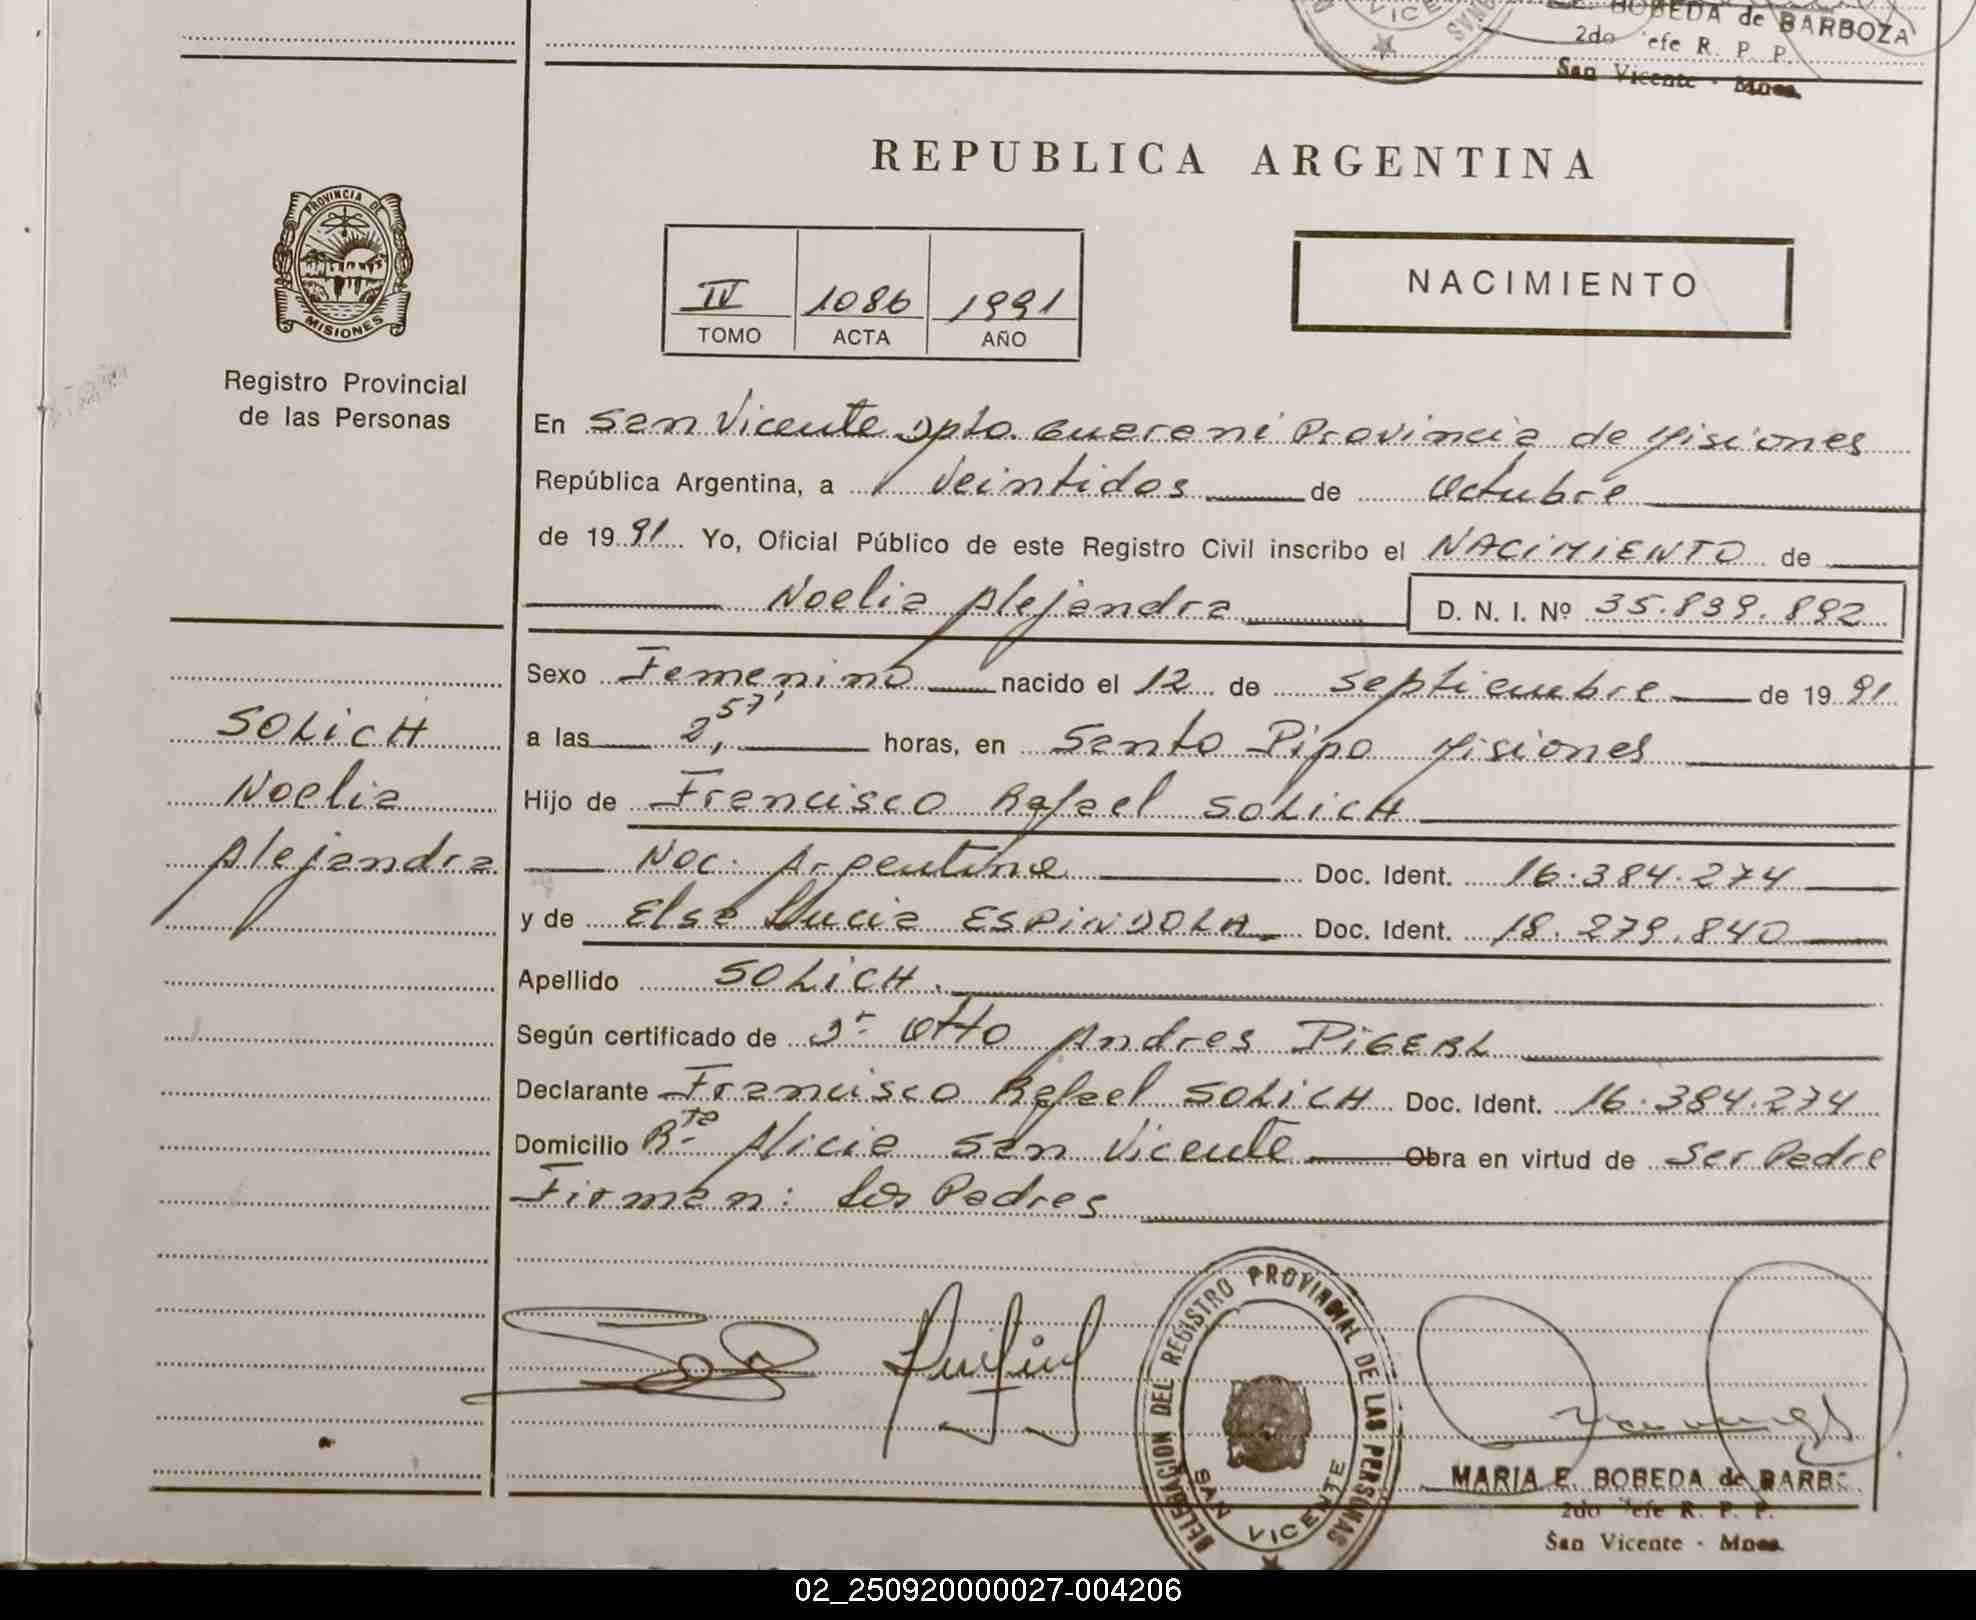 BOBEDA de BARBOZA
2do efe R. P. P.
San Vicente - Mnes.
REPUBLICA ARGENTINA
PROVINCIA DE
MISIONES
Registro Provincial
de las Personas
IV 1086 1991
TOMO ACTA AÑO
NACIMIENTO
En San Vicente Dpto. Guarani Provincia de Misiones
República Argentina, a veintidos de Octubre
de 1991 Yo, Oficial Público de este Registro Civil inscribo el NACIMIENTO de
Noelia Alejandra D. N. I. Nº 35.839.892
Sexo Femenino nacido el 12 de septiembre de 1991
a las 2,57' horas, en Santo Pipo Misiones
Hijo de Francisco Rafael SOLICH
Nac. Argentina Doc. Ident. 16.384.274
y de Elsa Lucia ESPINDOLA Doc. Ident. 18.279.840
Apellido SOLICH.
Según certificado de Dr Otto Andres PIGERL
Declarante Francisco Rafael SOLICH Doc. Ident. 16.384.274
Domicilio Rta Alicia San Vicente Obra en virtud de Ser Padre
Firman: los Padres
SOLICH
Noelia
Alejandra
DELEGACION DEL REGISTRO PROVINCIAL DE LAS PERSONAS
SAN VICENTE
MARIA E. BOBEDA de BARB
2do efe R. P. P.
San Vicente - Mnes.
02_250920000027-004206